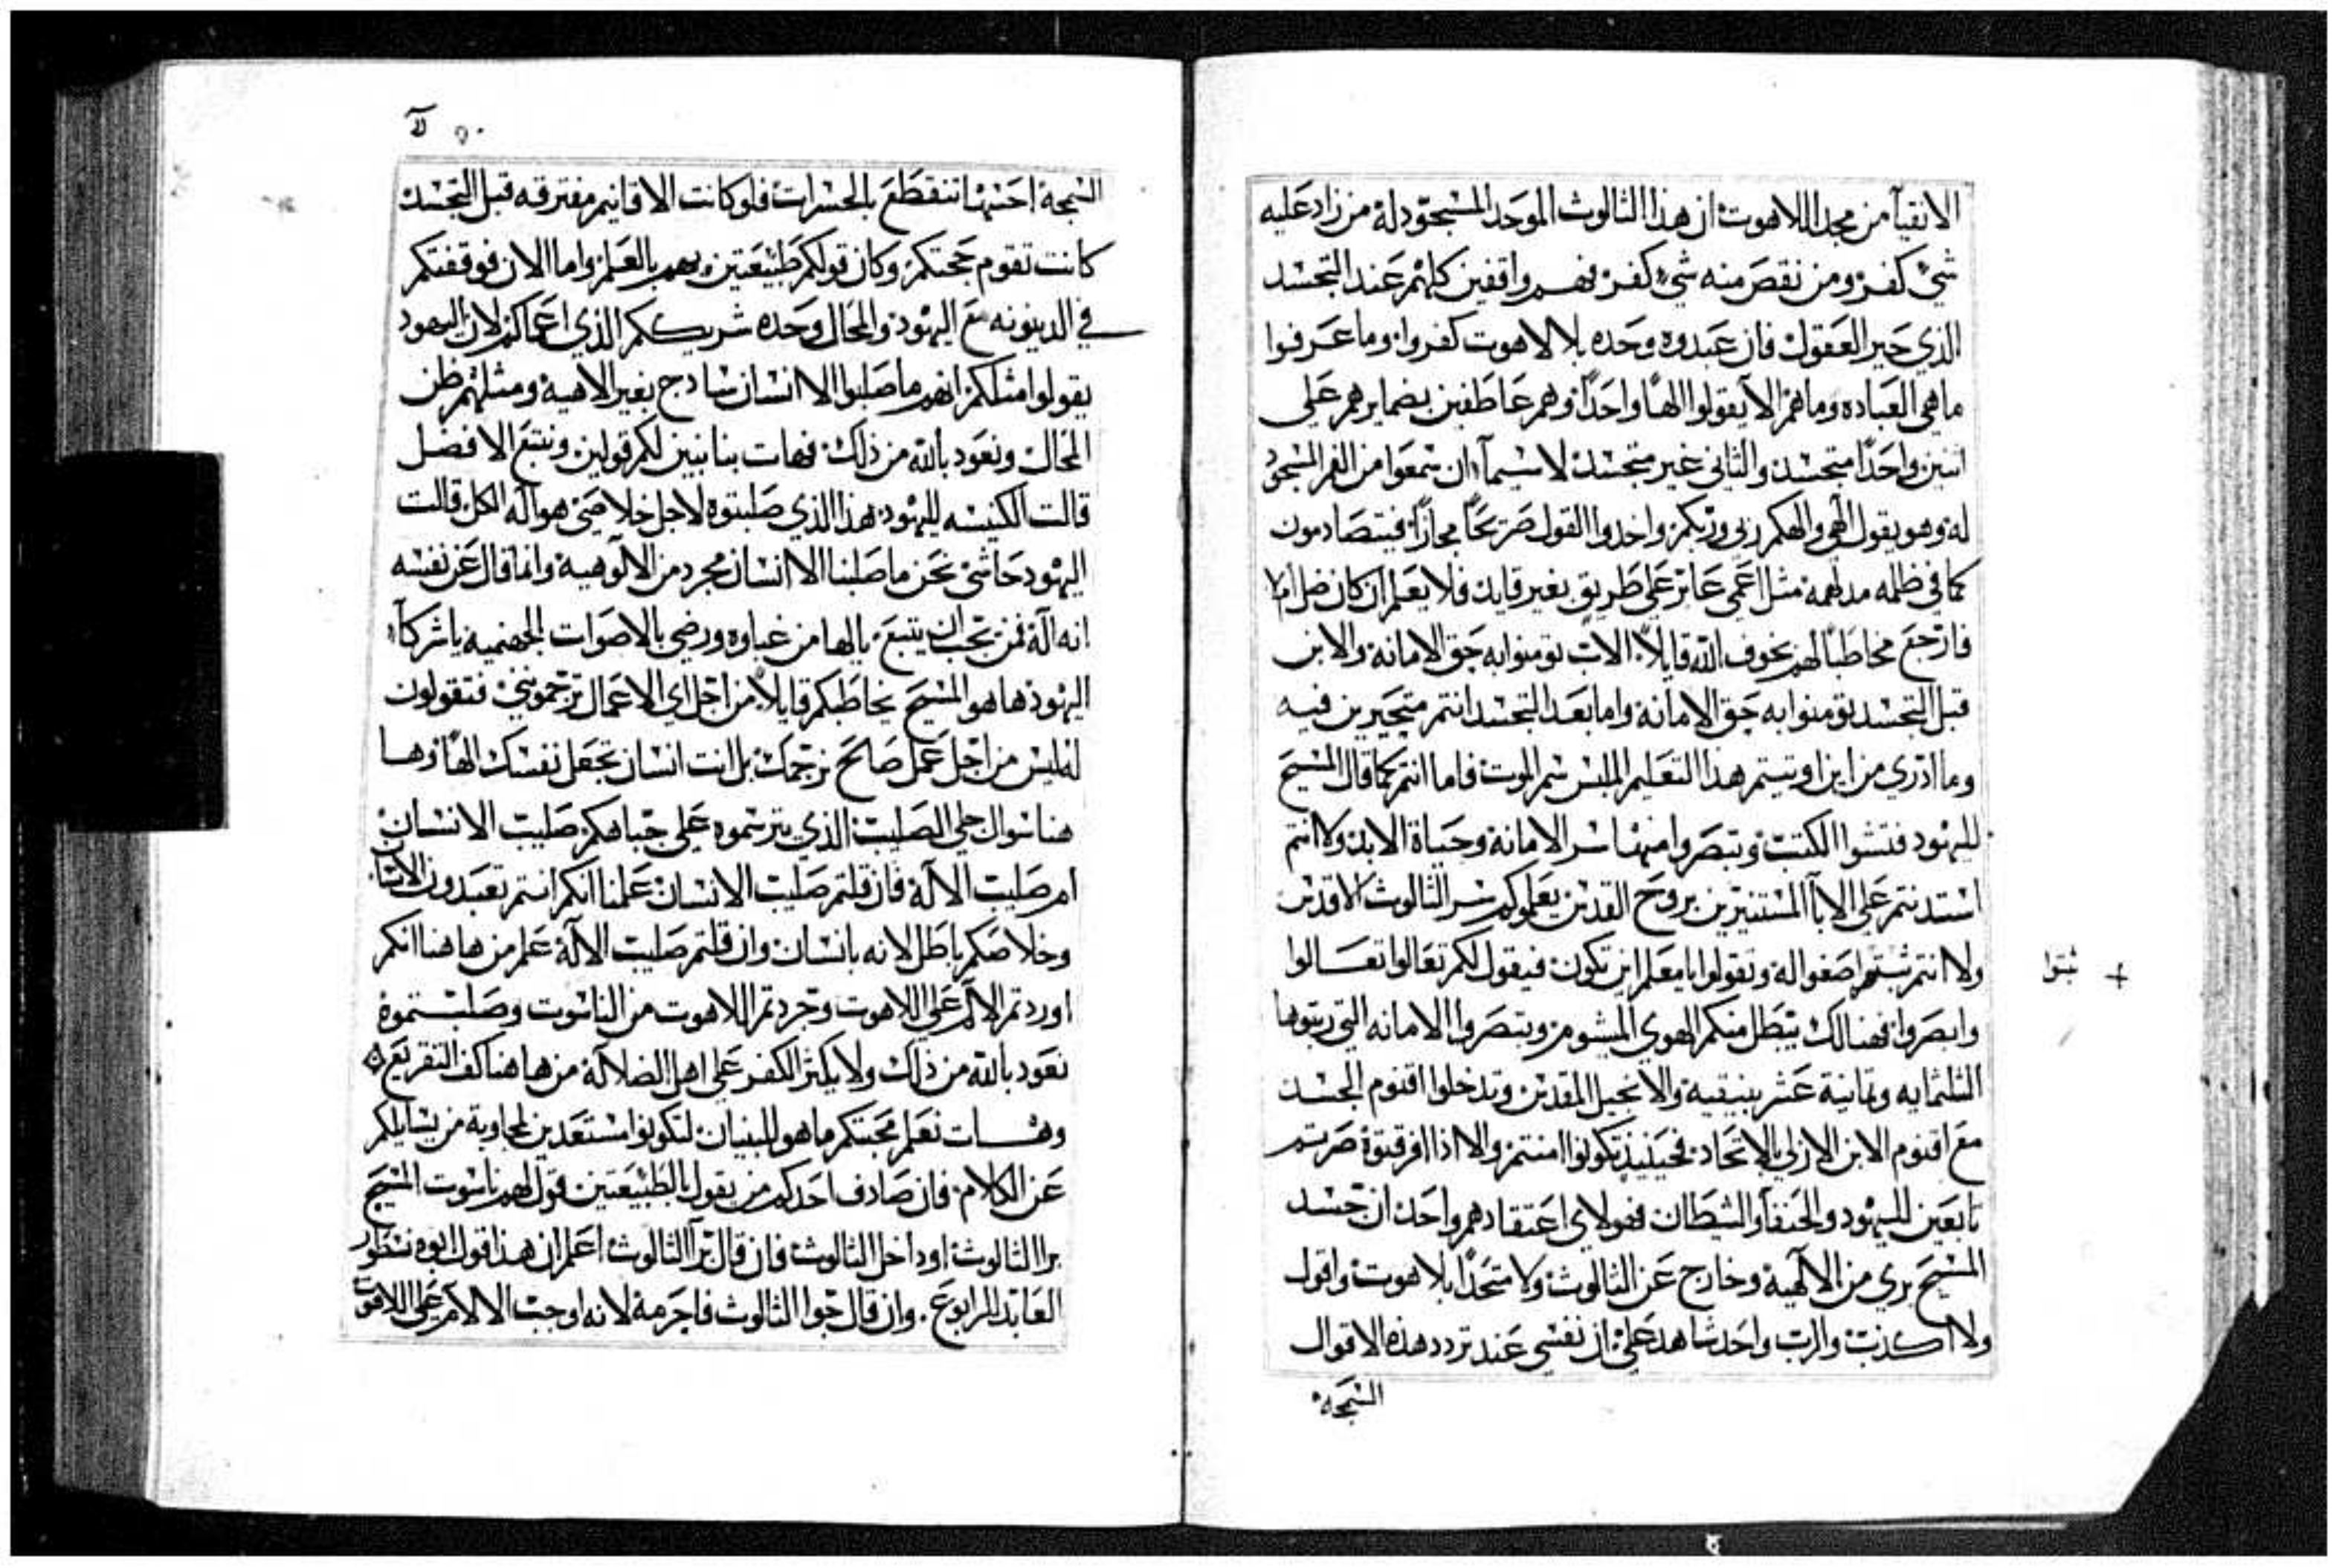 الاتقيآ من مجد اللاهوت ان هذا الثالوث الموحد المسجود له من زاد عليه
شيء كفر ومن نقص منه شيء كفر فهم واقفين كلهم عند التجسد
الذي حير العقول فان عبدوه وحده بلا لاهوت كفروا وما عرفوا
ما هي العباده وما هم الا يقولوا الهًا واحدًا وهم عاطفين بضمايرهم على
اتنين واحدًا متجسد والثاني غير متجسد لا سيمآ ان سمعوا من الفم المسجود
له وهو يقول الهي والهكم ربي وربكم واخدوا القول صريحًا مجازًا فيتصادمون
كما في ظلمه مدلهمه مثل اعمى عابر على طريق بغير قايد فلا يعلم ان كان ضل ام لا
فارجع مخاطبًا لهم بخوف الله قايلاً الاب تومنوا به حق الامانه والابن
قبل التجسد تومنوا به حق الامانه واما بعد التجسد انتم متحيرين فيه
وما ادري من اين اويتيتم هذا التعليم الملبس سم الموت فاما انتم كما قال المسيح
لليهود فتشوا الكتب وتبصروا منها سر الامانة وحياة الابد ولا انتم
استدنتم على الابآ المستنيرين بروح القدس يعلموكم سر الثالوث الاقدس
ولا انتم شيتم اصغوا له وتقولوا يا معلم اين تكون فيقول لكم تعالوا تعالوا
وابصروا فهنالك يبطل منكم الهوى الميشوم وتبصروا الامانه التي رتبوها
ثبتوا +
الثلثمايه وثمانية عشر بنيقيه والانجيل المقدس وتدخلوا اقنوم الجسد
مع اقنوم الابن الازلي بالاتحاد فحينيذ تكونوا امنتم والا اذا افرقتوه صرتم
تابعين لليهود والحنفآ والشيطان فهولاي اعتقادهم واحد ان جسد
المسيح بري من الالهية وخارج عن الثالوث ولا متحدًا بلاهوت واقول
ولا اكذب والرب واحد شاهد علي ان نفسي عند تردد هذه الاقوال
السمجه
السمجة احسها تتقطع بالحسرات فلو كانت الاقانيم مفترقه قبل التجسد
كانت تقوم حجتكم وكان قولكم طبيعتين بالعلم واما الان فوقفتكم
في الدينونه مع اليهود والمحال وحده شريككم الذي اعماكم لان اليهود
يقولوا مثلكم انهم ما صلبوا الا انسان سادج بغير الاهية ومثلهم ظن
المحال ونعود بالله من ذلك فهات بنا نبين لكم قولين ونتبع الافضل
قالت الكنيسه لليهود هذا الذي صلبتوه لاجل خلاصي هو اله الكل قالت
اليهود حاشى نحن ما صلبنا الا انسان مجرد من الالوهيه وانما قال عن نفسه
انه اله فمن يجب ان يتبع يالها من غباوه ورضي بالاصوات الجهنميه يا شركآ
اليهود ها هو المسيح يخاطبكم قايلاً من اجل اي الاعمال ترجموني فتقولون
له ليس من اجل عمل صالح نرجمك بل انت انسان تجعل نفسك الهًا وها
هنا سوال جلي الصليب الذي ترشموه على جباهكم صليب الانسان
ام صليب الاله فان قلتم صليب الانسان علمنا انكم انتم تعبدون الانسان
وخلاصكم باطل لانه بانسان وان قلتم صليب الاله علم من هاهنا انكم
اوردتم الالم على اللاهوت وجردتم اللاهوت من الناسوت وصلبتموه
نعود بالله من ذلك ولا يكثر الكفر على اهل الضلاله من هاهنا كف التقريع
وهات نعلم محبتكم ما هو للبنيان لتكونوا مستعدين لمجاوبة من يسايلكم
عن الكلام فان صادف احدكم من يقول بالطبيعتين قول لهم ناسوت المسيح
برا الثالوث او داخل الثالوث فان قال برآ الثالوث اعلم ان هذا قول ابوه نسطور
العابد الرابوع وان قال جوا الثالوث فاحرمه لانه اوجب الالام على اللاهوت